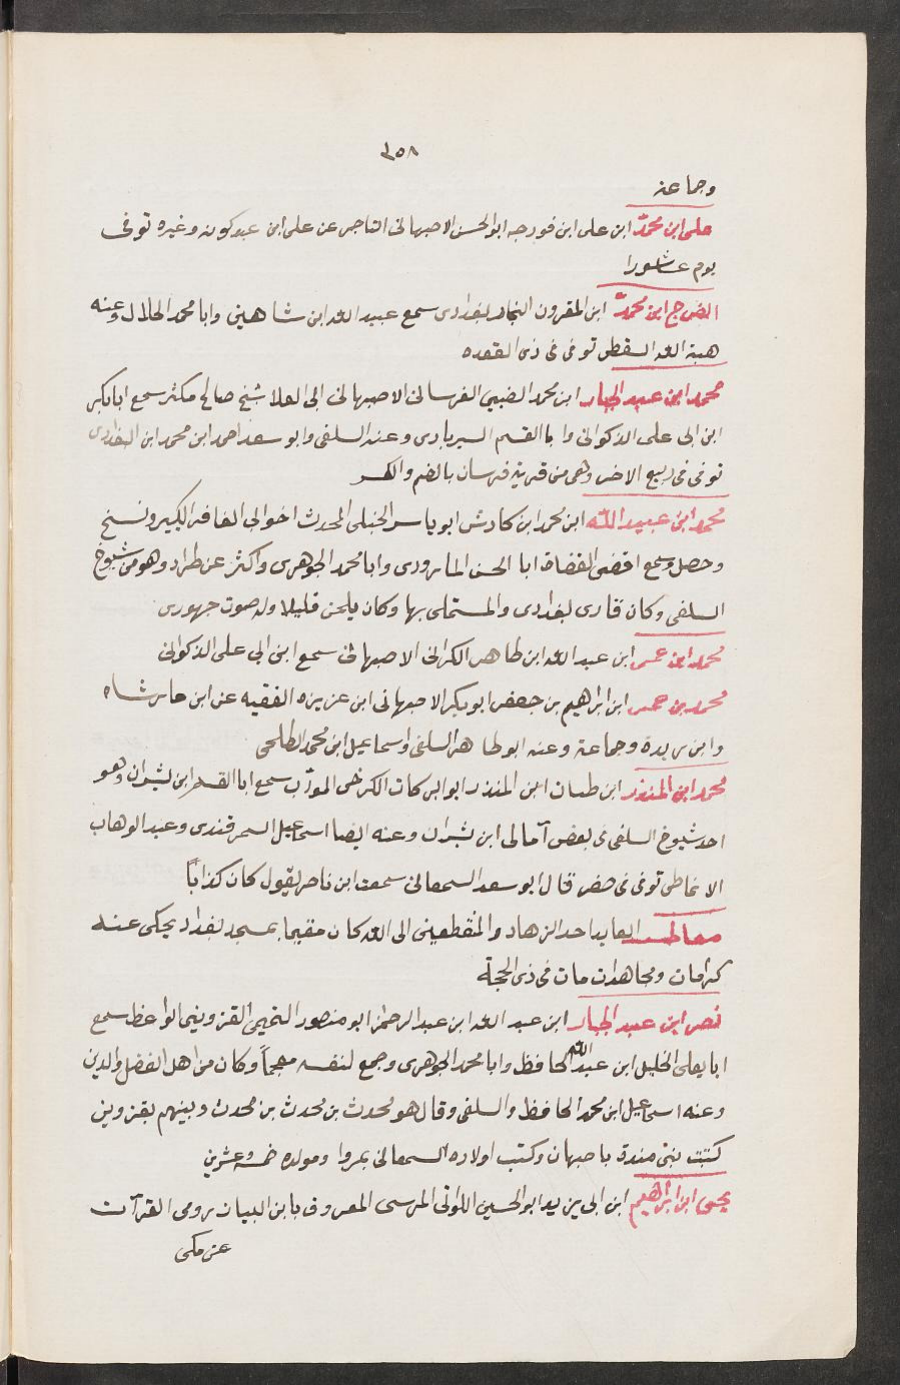 ٣٥٨
وجماعة
على ابن محمد ابن على ابن فورجه ابو الحسن الاصبهانى التاجر عن على ابن عبدكويه وغيره توفى
يوم عاشورا
ابن محمد ابن المقرون النجار بغدادى سمع عبيد الله ابن شاهين وابا محمد الخلال وعنه
هبة الله السقطى توفى فى ذى القعده
محمد ابن عبد الجبار ابن محمد الضبيى الفرسانى الاصبهانى ابى العلا شيخ صالح مكثر سمع ابا بكر
ابن ابى على الذكوانى وابا القسم السيربادى وعنه السلفى وابو سعد احمد ابن محمد ابن البغدادى
توفى فى ربيع الاخر وهى من قرية فرسان بالضم والكسر
محمد ابن عبيد الله ابن محمد ابن كادش ابو ياسر الحنبلى المحدث اخو ابى الكبير ونسخ
وحصل وسمع اقضى القضاة ابا الحسن الماوردى وابا محمد الجوهرى واكثر عن طراد وهو من شيوخ
السلفى وكان قارى بغدادى والمستملى بها وكان يلحن قليلا وله صوت جهورى
محمد ابن عمر ابن عبد الله ابن طاهر الكرانى الاصبهانى سمع ابن ابى على الذكوانى
محمد بن عمر ابن ابراهيم بن جعفر ابو بكر الاصبهانى ابن عزيزه الفقيه عن ابن
وابن ريدة وجماعة وعنه ابو طاهر السلفى واسماعيل ابن محمد الطلحى
محمد ابن المنذر ابن طيبان ابن المنذر ابو البركات الكرخى المودب سمع ابا القسم ابن بشران وهو
احد شيوخ السلفى فى بعض آمالى ابن بشران وعنه ايضا اسماعيل السمرقندى وعبد الوهاب
الانماطى توفى فى صفر قال ابو سعد السمعانى سمعت ابن ناصر يقول كان كذاباً
العابد احد الزهاد والمنقطعين الى الله كان مقيما بمسجد بغداد يحكى عنه
كرامات ومجاهدات مات فى ذى الحجة
نصر ابن عبد الجبار ابن عبد الله ابن عبد الرحمن ابو منصور التميمى القزوينى الواعظ سمع
ابا يعلى الخليل ابن عبد الله الحافظ وابا محمد الجوهرى وجمع لنفسه معجماً وكان من اهل الفضل والدين
وعنه اسماعيل ابن محمد الحافظ والسلفى وقال هو محدث بن محدث بن محدث وبيتهم بقزوين
كبيت بنى مندة باصبهان وكتب اولاده السمعانى بمروا ومولده خمسه وعشرين
يحيى ابن ابراهيم ابن ابى يزيد ابو الحسين اللواتى المرسى المعروف بابن البيان روى القرآت
عن مكى